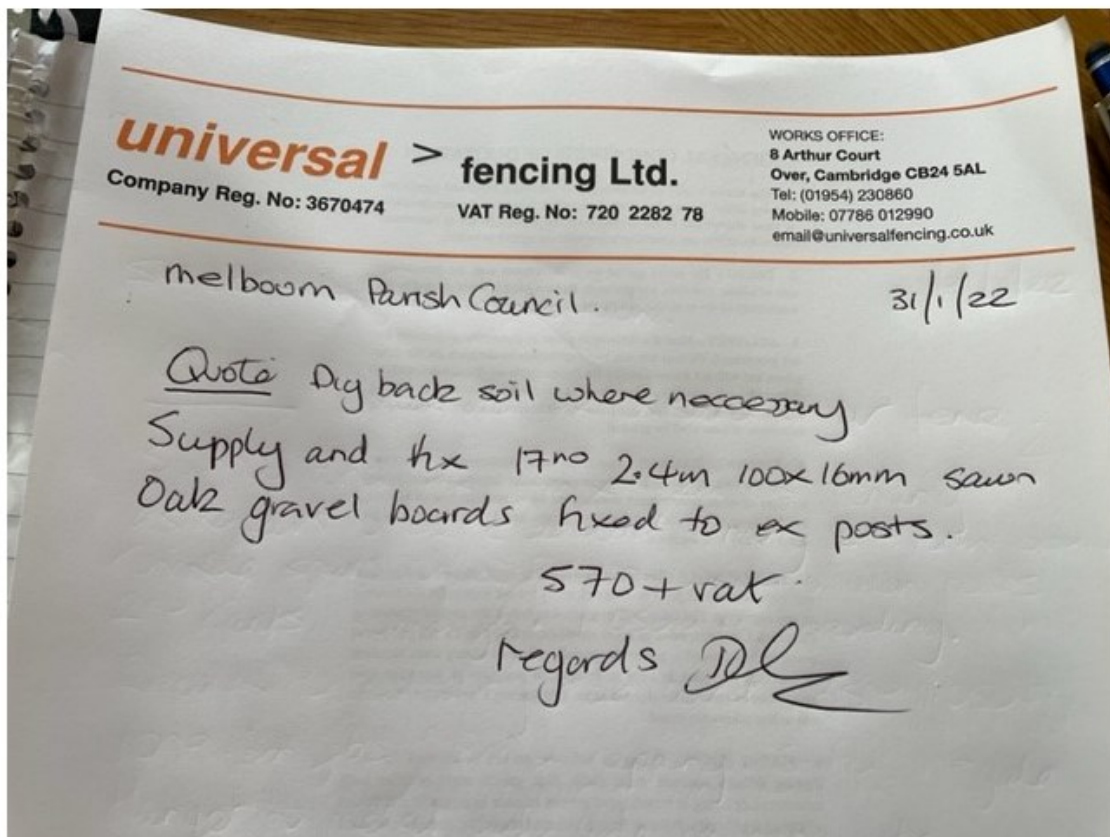 universal > fencing Ltd.
Company Reg. No: 3670474
VAT Reg. No: 720 2282 78
WORKS OFFICE:
8 Arthur Court
Over, Cambridge CB24 5AL
Tel: (01954) 230860
Mobile: 07786 012990
email@universalfencing.co.uk
melbourn Parish Council.
31/1/22
Quote Dig back soil where neccessary
Supply and fix 17no 2.4m 100x16mm sawn
Oak gravel boards fixed to ex posts.
570 + vat.
regards